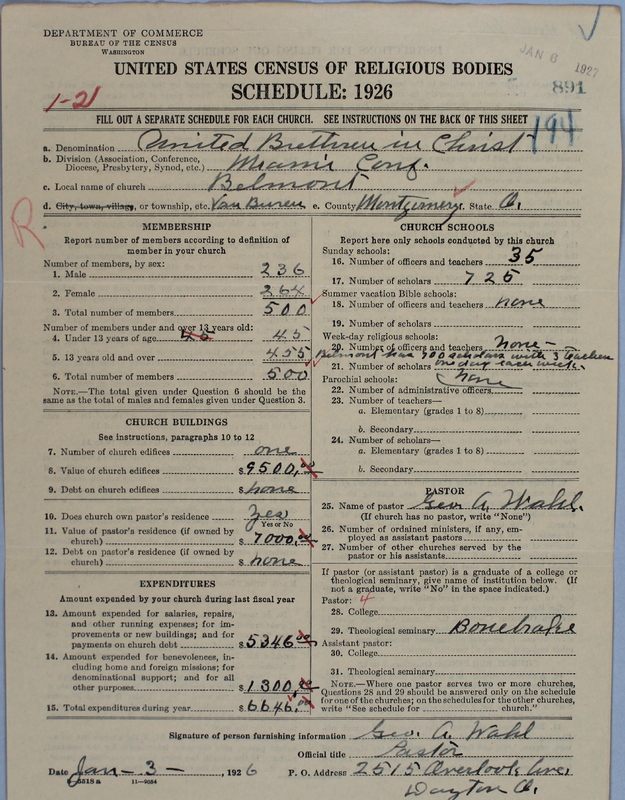 DEPARTMENT OF COMMERCE
BUREAU OF THE CENSUS
WASHINGTON
JAN 6 1927
UNITED STATES CENSUS OF RELIGIOUS BODIES
891
SCHEDULE: 1926
1-21
FILL OUT A SEPARATE SCHEDULE FOR EACH CHURCH. SEE INSTRUCTIONS ON THE BACK OF THIS SHEET
194
a. Denomination United Brethren in Christ
b. Division (Association, Conference,
Diocese, Presbytery, Synod, etc.) Miami Conf.
c. Local name of church Belmont
d. City, town, village, or township, etc. Van Buren e. County Montgomery f. State O.
R
MEMBERSHIP
Report number of members according to definition of
member in your church
Number of members, by sex:
1. Male 236
2. Female 264
3. Total number of members 500
Number of members under and over 13 years old:
4. Under 13 years of age 45 45
5. 13 years old and over 455
6. Total number of members 500
NOTE.—The total given under Question 6 should be the
same as the total of males and females given under Question 3.
CHURCH BUILDINGS
See instructions, paragraphs 10 to 12
7. Number of church edifices one
8. Value of church edifices $9500.00
9. Debt on church edifices $none
10. Does church own pastor's residence? yes
Yes or No
11. Value of pastor's residence (if owned by
church) $7000.00
12. Debt on pastor's residence (if owned by
church) $none
EXPENDITURES
Amount expended by your church during last fiscal year
13. Amount expended for salaries, repairs,
and other running expenses; for im-
provements or new buildings; and for
payments on church debt $5346.00
14. Amount expended for benevolences, in-
cluding home and foreign missions; for
denominational support; and for all
other purposes $1300.00
15. Total expenditures during year $6646.00
CHURCH SCHOOLS
Report here only schools conducted by this church
Sunday schools:
16. Number of officers and teachers 35
17. Number of scholars 725
Summer vacation Bible schools:
18. Number of officers and teachers none
19. Number of scholars
Week-day religious schools:
20. Number of officers and teachers none
Belmont has 700 scholars with 3 teachers
21. Number of scholars one day each week.
Parochial schools: none
22. Number of administrative officers
23. Number of teachers—
a. Elementary (grades 1 to 8)
b. Secondary
24. Number of scholars—
a. Elementary (grades 1 to 8)
b. Secondary
PASTOR
25. Name of pastor Geo. A. Wahl.
(If church has no pastor, write "None")
26. Number of ordained ministers, if any, em-
ployed as assistant pastors
27. Number of other churches served by the
pastor or his assistants
If pastor (or assistant pastor) is a graduate of a college or
theological seminary, give name of institution below. (If
not a graduate, write "No" in the space indicated.)
Pastor: 4
28. College
29. Theological seminary Bonebrake
Assistant pastor:
30. College
31. Theological seminary
NOTE.—Where one pastor serves two or more churches,
Questions 28 and 29 should be answered only on the schedule
for one of the churches; on the schedules for the other churches,
write "See schedule for church."
Signature of person furnishing information Geo. A. Wahl
Official title Pastor
Date Jan-3-, 1926 P. O. Address 2515 Overlook Ave.
5518 a 11-9064
Dayton O.